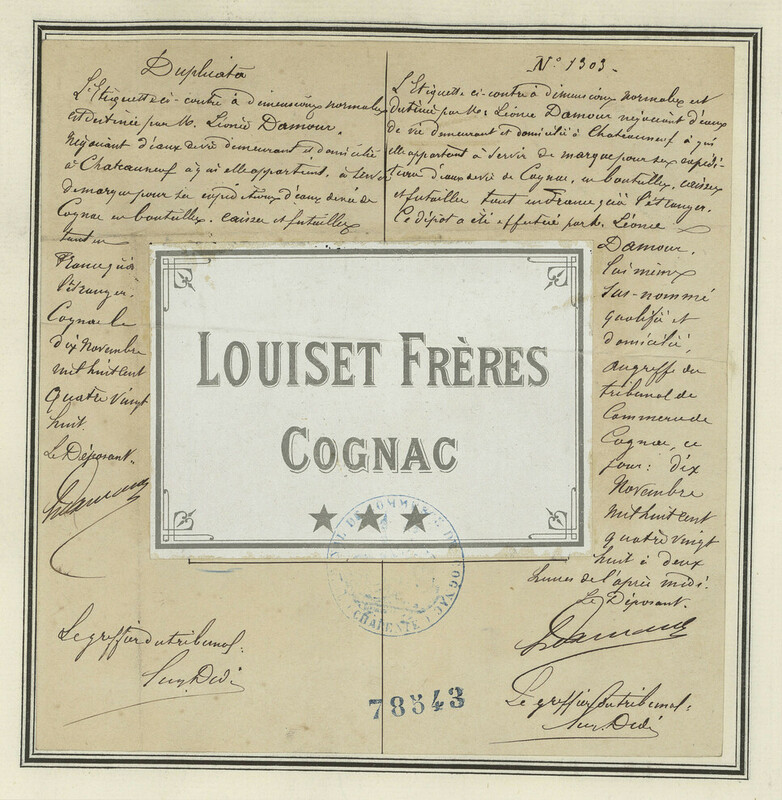 Duplicata
L'Etiquette ci-contre à dimensions normales
est destinée par M. Léonce Damour,
Négociant d'eaux de vie demeurant et domicilié
à Chateauneuf à qui elle appartient, à servir
de marque pour ses expéditions d'eaux de vie de
Cognac en bouteilles, caisses et futailles
tant en
France qu'à
l'étranger.
Cognac le
dix Novembre
mil huit cent
quatre vingt
huit.
Le Déposant.
Damour
Le greffier du tribunal.
N° 1303
L'Etiquette ci-contre à dimensions normales est
destinée par M. Léonce Damour négociant d'eaux
de vie demeurant et domicilié à Chateauneuf à qui
elle appartient à servir de marque pour ses expédi-
tions d'eaux de vie de Cognac, en bouteilles, caisses
et futailles tant en France qu'à l'étranger.
Ce dépôt a été effectué par M. Léonce
Damour,
lui même
sus-nommé
qualifié et
domicilié,
au greffe du
tribunal de
Commerce de
Cognac, ce
jour: dix
Novembre
mil huit cent
quatre vingt
huit à deux
heures de l'après midi.
Le Déposant.
Damour
Le greffier du tribunal:
LOUISET FRÈRES
COGNAC
TRIBUNAL DE COMMERCE DE COGNAC
(CHARENTE)
78543